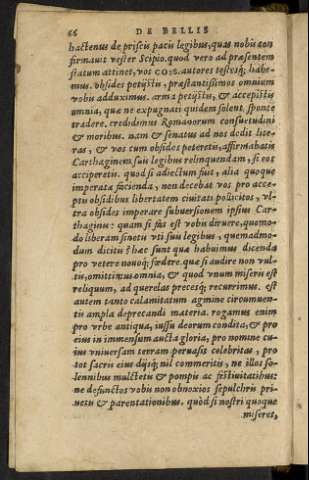 66 DE BELLIS
hactenus de priscis pacis legibus, quas nobis con
firmauit vester Scipio. quod vero ad præsentem
statum attinet, vos COSS. autores testesq; habe-
mus. obsides petijstis, præstantissimos omnium
vobis adduximus. arma petijstis, & accepistis
omnia, quæ ne expugnati quidem solent sponte
tradere. credidimus Romanorum consuetudini
& moribus. nam & senatus ad nos dedit lite-
ras, & vos cum obsides peteretis, affirmabatis
Carthaginem sui legibus relinquendam, si eos
acciperetis. quod si adiectum fuit, alia quoque
imperata facienda, non decebat vos pro acce-
ptis obsidibus libertatem ciuitati polliciros, vl-
tra obsides imperare subuersionem ipsius Car-
thaginis: quam si fas est vobis diruere, quomo-
do liberam sinetis vti suis legibus, quemadmo-
dum dicitis? hæc sunt quæ habuimus dicenda
pro vetere nouoq; fœdere. quæ si audire non vul-
tis, omittimus omnia, & quod vnum miseris est
reliquum, ad querelas precesq; recurrimus. est
autem tanto calamitatum agmine circumuen-
tis ampla deprecandi materia. rogamus enim
pro vrbe antiqua, iussu deorum condita, & pro
eius in immensum aucta gloria, pro nomine cu-
ius vniuersam terram peruasit celebritas, pro
tot sacris eius dijsq; nil commeritis, ne illos so-
lennibus mulctetis & pompis ac festiuitatibus:
ne defunctos vobis non obnoxios sepulchris pri-
uetis & parentationibus. quòd si nostri quoque
miseret,